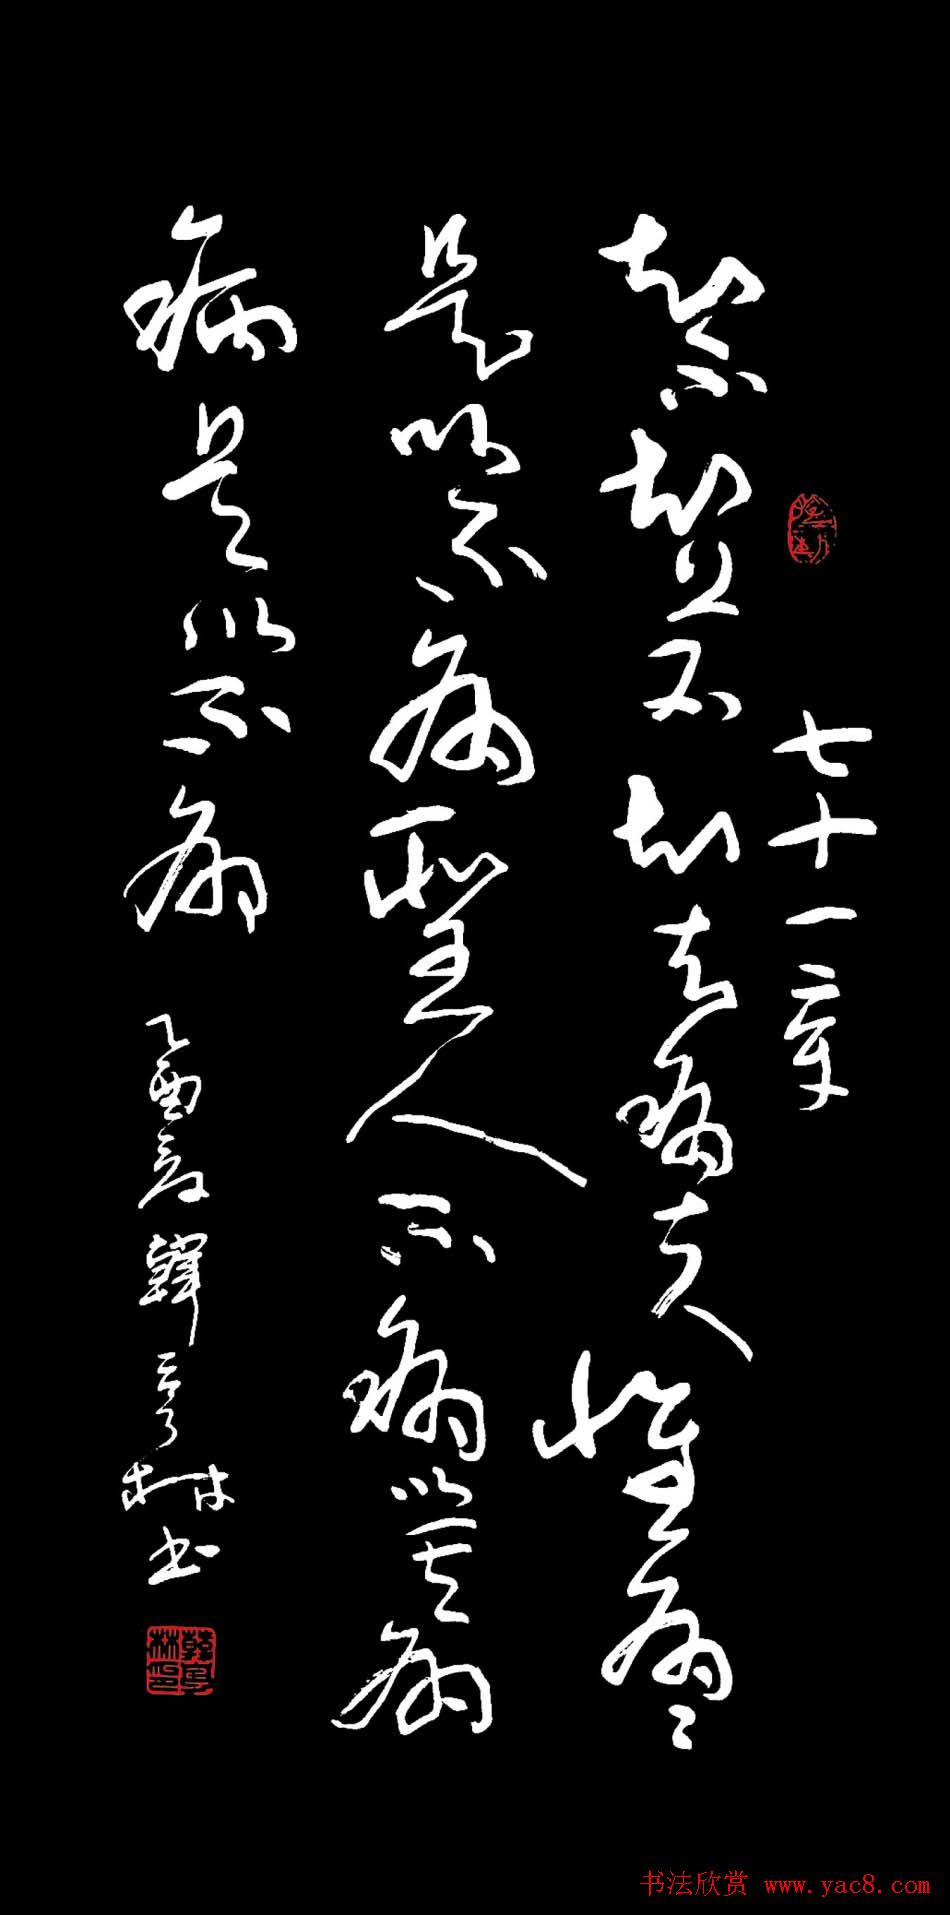 七十一章
知不知上不知知病夫惟病病
是以不病聖人不病以其病
病是以不病
乙酉夏韓亨林书
韓亨林印
书法欣赏 www.yac8.com